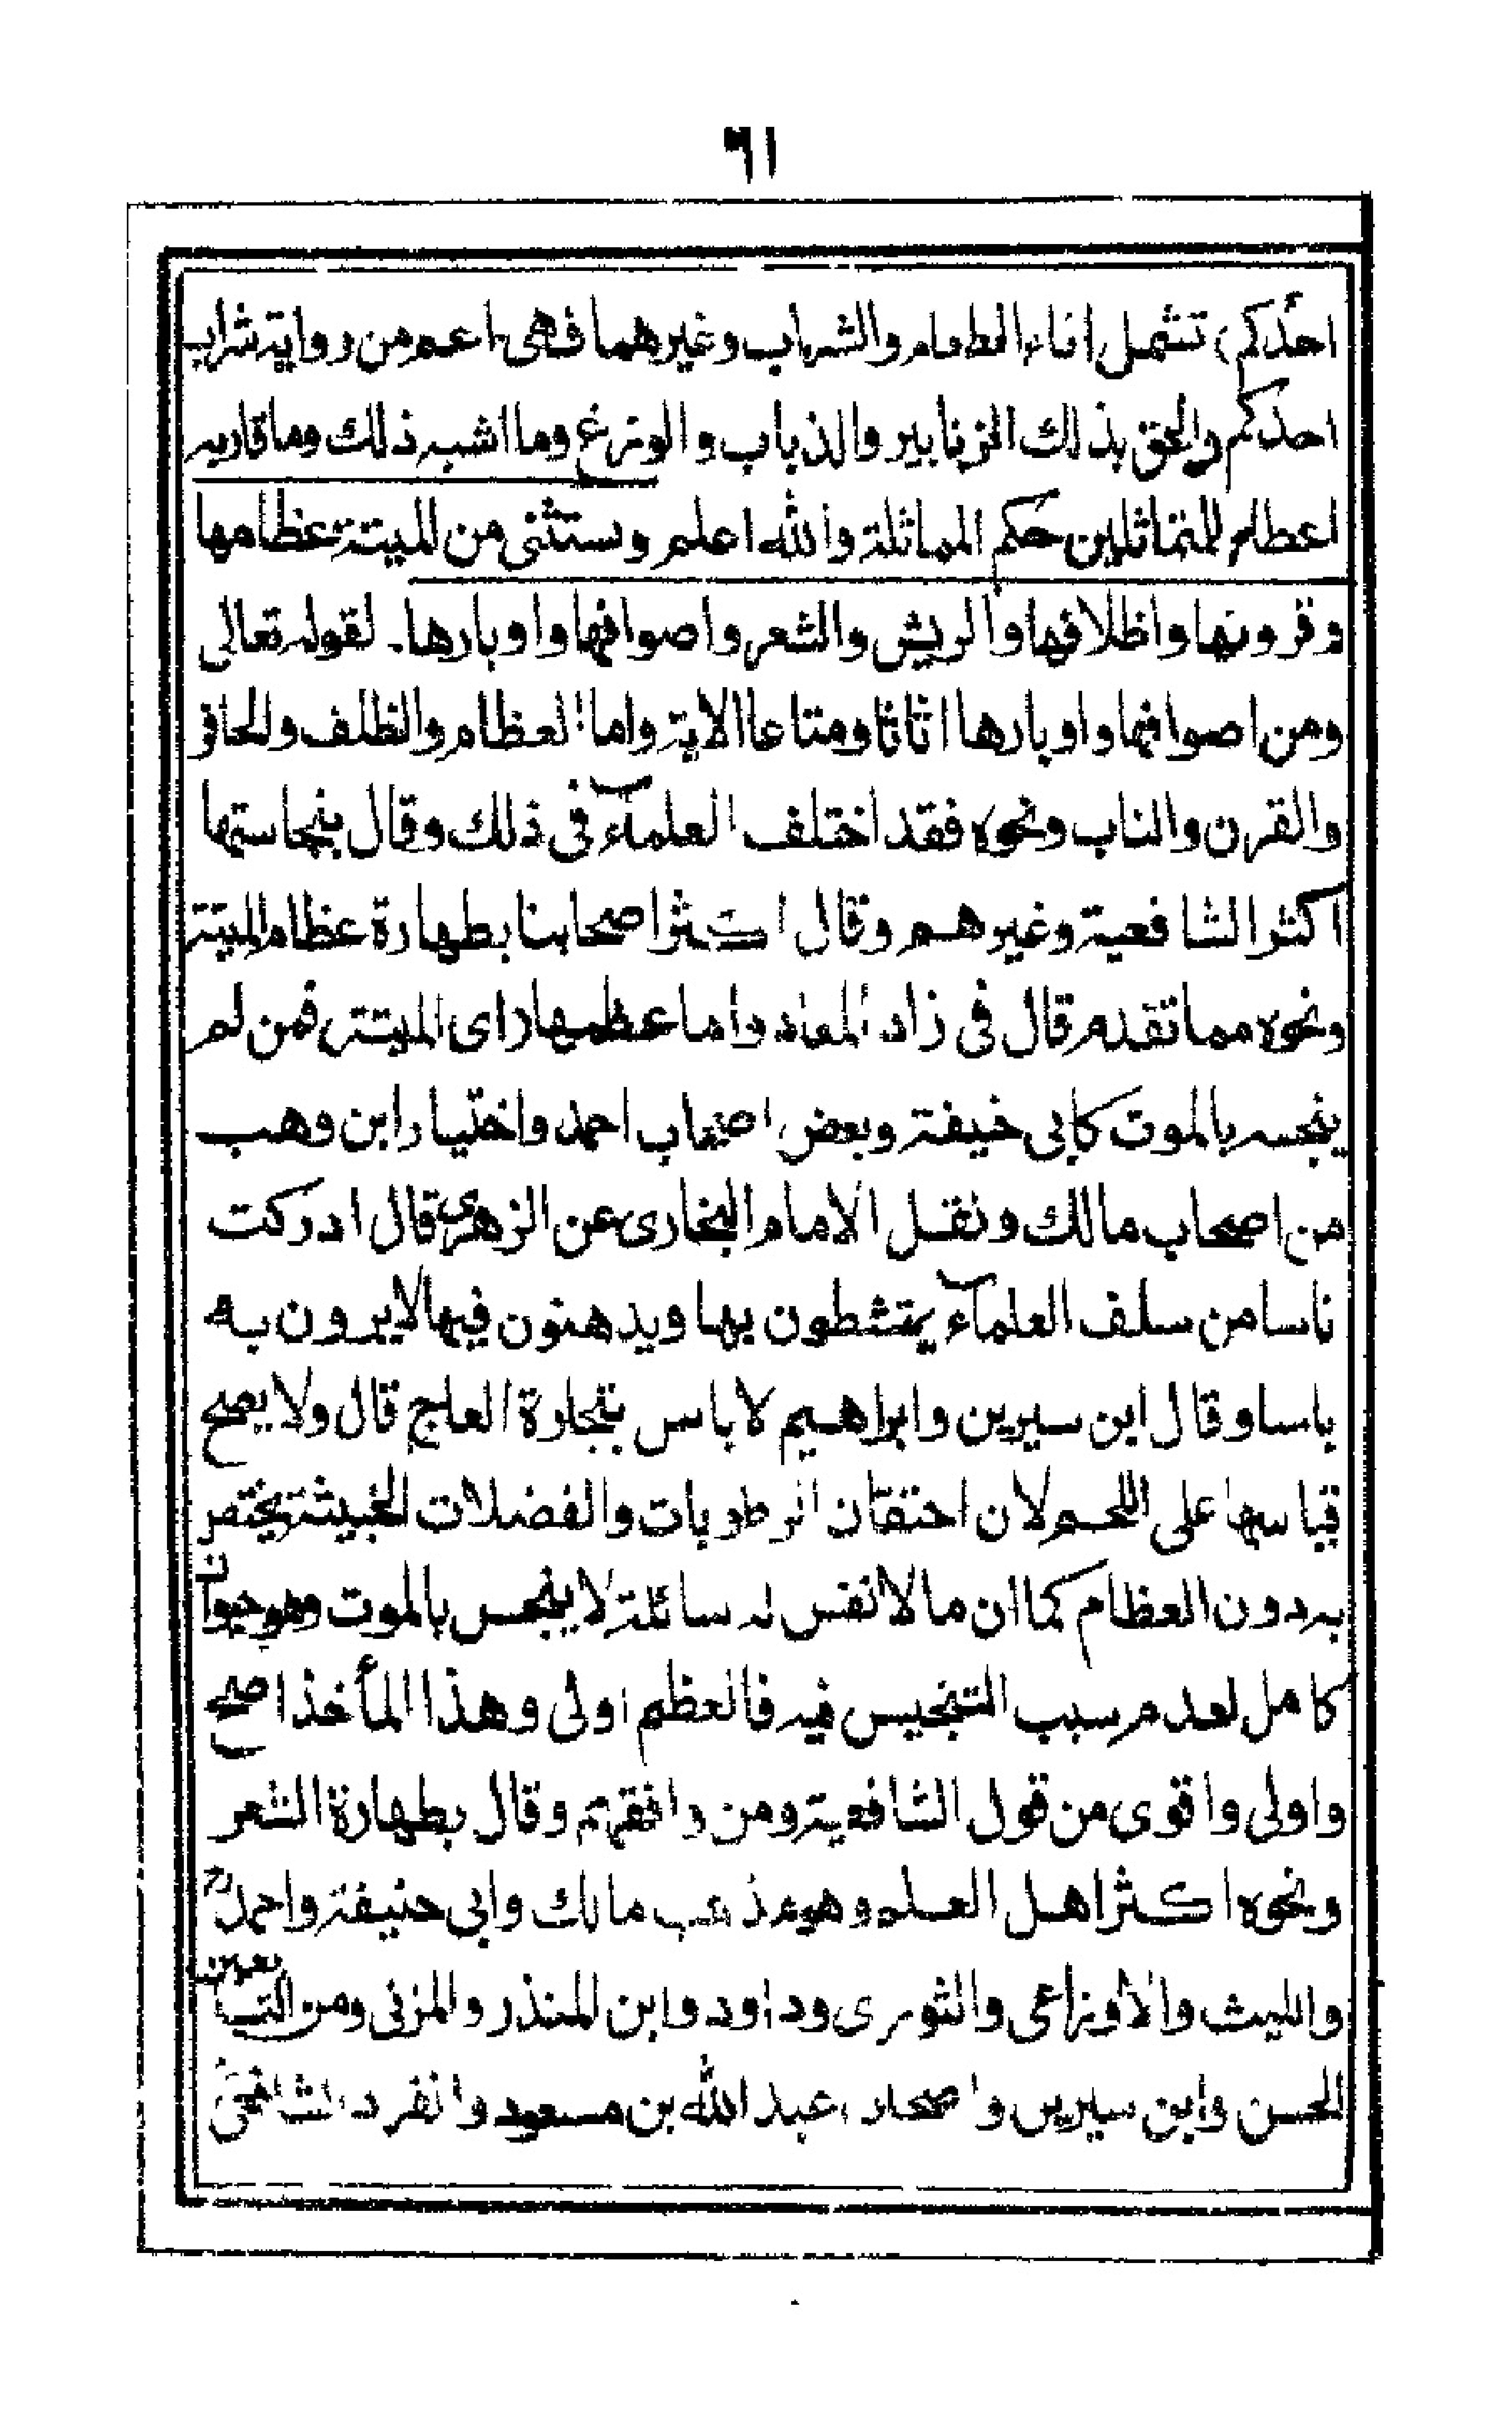 ٦١
احدكم) تشمل اناء الطعام والشراب وغيرهما فهى اعم من رواية شراب
احدكم والحق بذلك الزنابير والذباب والوزغ وما اشبه ذلك وما قاربه
اعطاء للمتماثلين حكم المماثلة والله اعلم وستثنى من الميتة عظامها
وقرونها واظلافها والريش والشعر واصوافها واوبارها. لقوله تعالى
ومن اصوافها واوبارها اثاثا ومتاعا الاية واما العظام والظلف والحافر
والقرن والناب ونحوه فقد اختلف العلمآء فى ذلك وقال بنجاستها
اكثر الشافعية وغيرهم وقال اكثر اصحابنا بطهارة عظام الميتة
ونحوه مما تقدم قال فى زاد المعاد واما عظمها اى الميتة فمن لم
ينجسه بالموت كابى حنيفة وبعض اصحاب احمد واختيار ابن وهب
من اصحاب مالك ونقل الامام البخارى عن الزهرى قال ادركت
ناسا من سلف العلمآء يمتشطون بها ويدهنون فيها لا يرون به
باسا وقال ابن سيرين وابراهيم لا باس بتجارة العاج قال ولا يصح
قياسها على اللحم لان احتقان الرطوبات والفضلات الخبيثة يختص
به دون العظام كما ان ما لا نفس له سائلة لا ينجس بالموت وهو حيوان
كامل لعدم سبب التنجيس فيه فالعظم اولى وهذا المأخذ اصح
واولى واقوى من قول الشافعية ومن وافقهم وقال بطهارة الشعر
ونحوه اكثر اهل العلم وهو مذهب مالك وابى حنيفة واحمد
والليث والاوزاعى والثورى وداود وابن المنذر والمزنى ومن التابعين
الحسن وابن سيرين واصحاب عبد الله بن مسعود وانفرد الشافعى